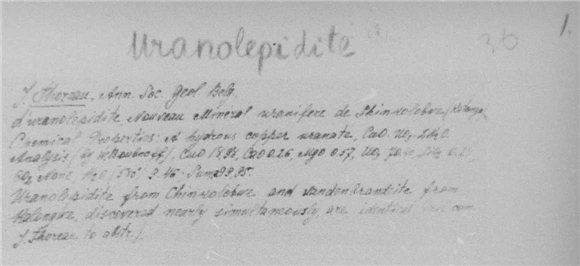 Uranolepidite
36
1.
J. Thoreau. Ann. Soc. Geol Belg.
d'uranolepidite Nouveau Mineral uranifere de Shinkolobwe (Katanga)
Chemical Properties: A hydrous copper uranate, CuO. UO3. 2H2O.
Analysis (by), CuO CaO 0.26, MgO 0.57, UO3
None, H2O 9.46. Sum 99.95.
Uranolepidite from Chinkolobwe and vandenbrandite from
Kalongwe, discovered nearly simultaneously, are identical
J. Thoreau to abstr.).